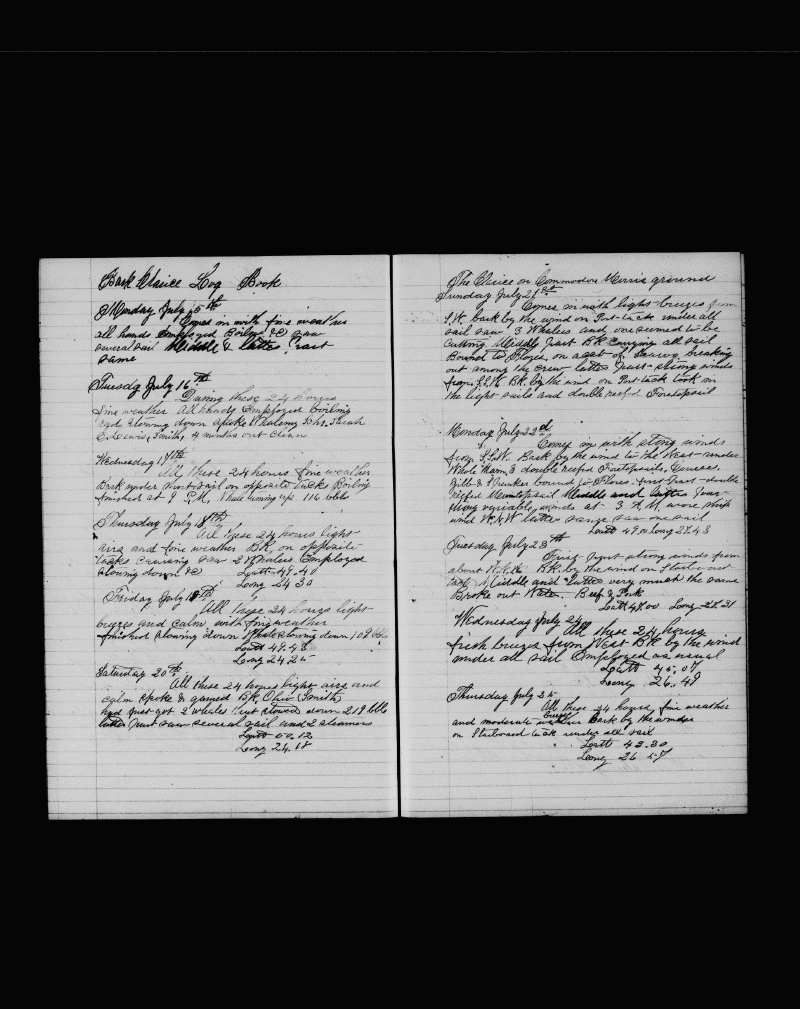 Bark Log Book
Monday July 15th
Comes in with fine weather
all hands Employed Boiling &c saw
several sail Middle & latter Part
same
Tuesday July 16th
During these 24 hours
fine weather All hands Employed Boiling
and stowing down spoke Whaling Schr. Sarah
E. Lewis, Smith, 4 months out Clean
Wednesday 17th
All these 24 hours fine weather
Bark under short sail on opposite tacks Boiling
finished at 9 P.M. Whale turning up 116 bbls
Thursday July 18th
All these 24 hours light
airs and fine weather BK on opposite
tacks Cruising saw 2 Whalers Employed
stowing down &c Latt 49.40
Long 24 30
Friday July 19th
All these 24 hours light
breezes and calm with fine weather
finished stowing down Whale stowing down 109 bbls
Latt 49.48
Long 24 25
Saturday 20th
All these 24 hours light airs and
calm spoke & gamed BK Ohio (Smith)
had just got 2 whales just stowed down 219 bbls
latter Part saw several sail and 2 steamers
Latt 50.12
Long 24.18
The on Commodore Morris ground
Sunday July 21st
Comes in with light breezes from
S.W. bark by the wind on Port tack under all
sail saw 3 Whalers and one seemed to be
Cutting Middle Part BK Carrying all sail
Bound to Flores, on acct of Scurvy breaking
out among the crew latter Part strong winds
from BK by the wind on Port tack took in
the light sails and double reefed Foretopsail
Monday July 22d
Comes in with strong winds
from S.S.W. Bark by the wind to the West under
Whole Main & double reefed Foretopsails, Courses,
Jibb & Spanker bound to Flores. first Part double
reefed Maintopsail Middle and latter Part
strong variable winds at 3 A.M. wore ship
wind W.N.W latter same saw one sail
Latt 49.00 Long 27.43
Tuesday July 23th
First Part strong winds from
about BK by the wind on Starboard
tack Middle and Latter very much the same
Broke out Water, Beef & Pork
Latt 47.00 Long 27.31
Wednesday July 24
All these 24 hours
fresh breezes from West BK by the wind
under all sail Employed as usual
Latt 45.07
Long 26.49
Thursday July 25
All these 24 hours, fine weather
and moderate breeze Bark by the winds
on Starboard tack under all sail
Latt 43.30
Long 26 57